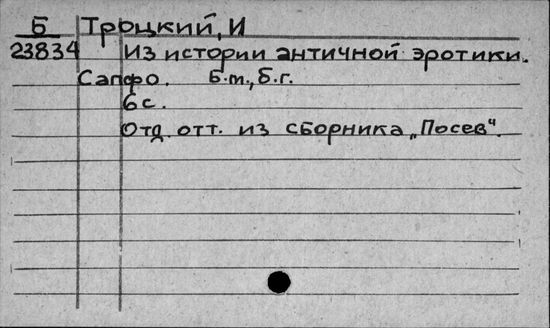 Б Троцкий, И
23834 Из истории античной эротики.
Сапфо. Б.т., б.г.
6 с.
Отд. отт. из сборника „Посев".